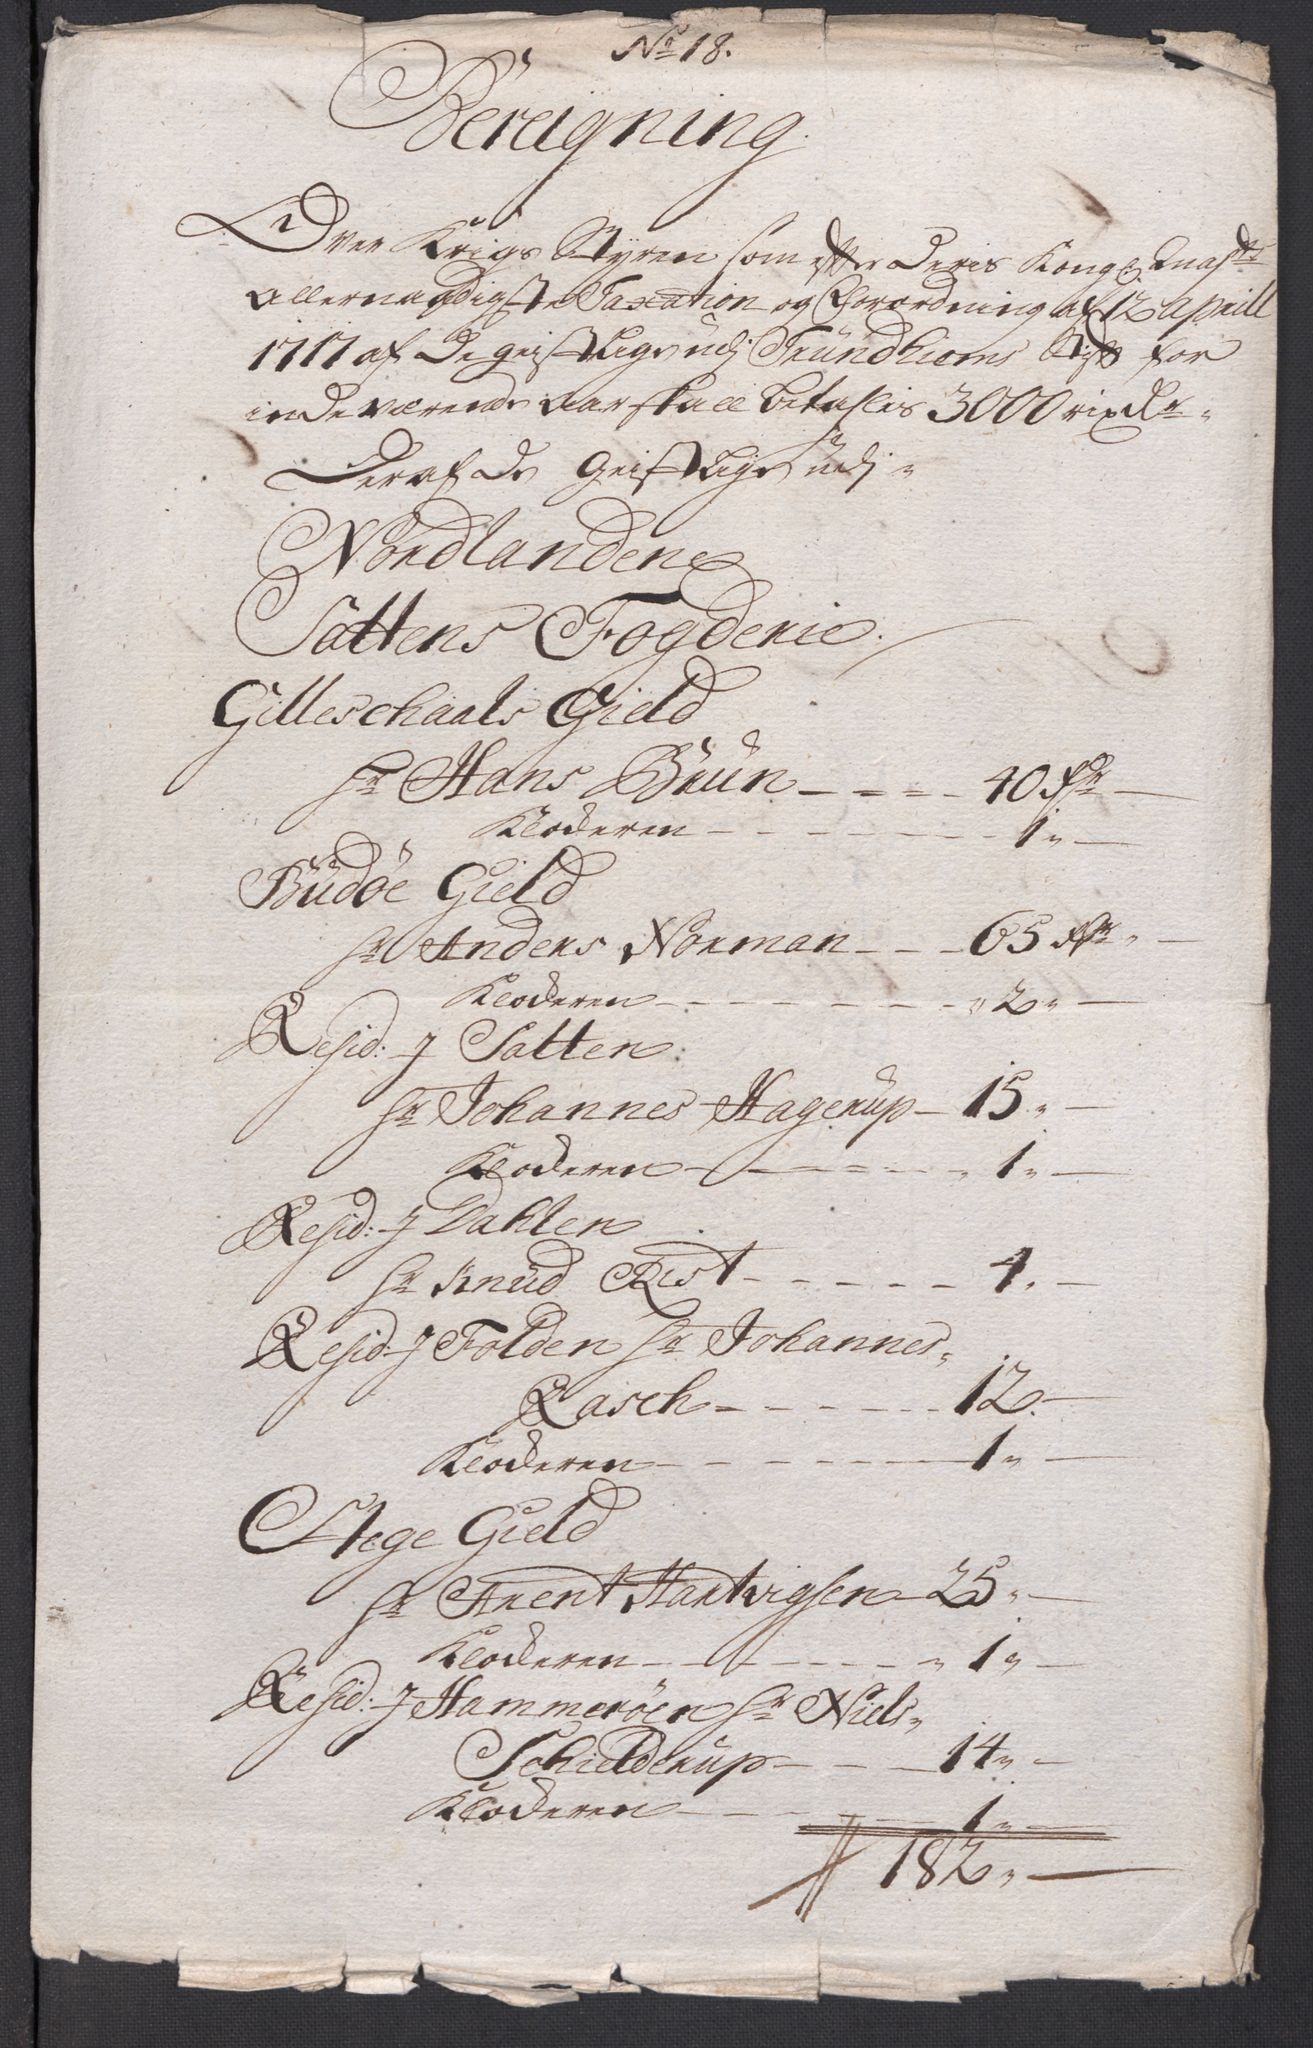 No 18.
Bereigning
Over Krigs Styren som efter Deris Kongl: Maÿsts
Allernaadigste Taxation og Forordning af 12 Aprill
1717 af De geistlige udj Trundhiems Stift for
indeværende Aar skall betahles 3000 rixdr
Deraf De Geistlige udj
Nordlandene
Saltens Fogderie.
Gilleschaals Gield
Hr Hans Brun - - - - 40 Rdr -
Kloderen - - - - - - 1" -
Budøe Gield
Hr Anders Norman - - - 65 Rdr" -
Kloderen - - - - - - " 2" -
Resid: J Salten
Hr Johannes Hagerup - 15" -
Kloderen - - - - - - " 1" -
Resid: J Dahlen
Hr Knud Rist - - - - - 4" -
Resid: J Folden Hr Johannes"
Rasch - - - - - - 12" -
Kloderen - - - - - - 1" -
Stege Gield
Hr Arent Hartvigsen - 25" -
Kloderen - - - - - - " 1" -
Resid: J Hammerøen Hr Niels"
Schielderup - - - 14" -
Kloderen - - - - - 1" -
182" -